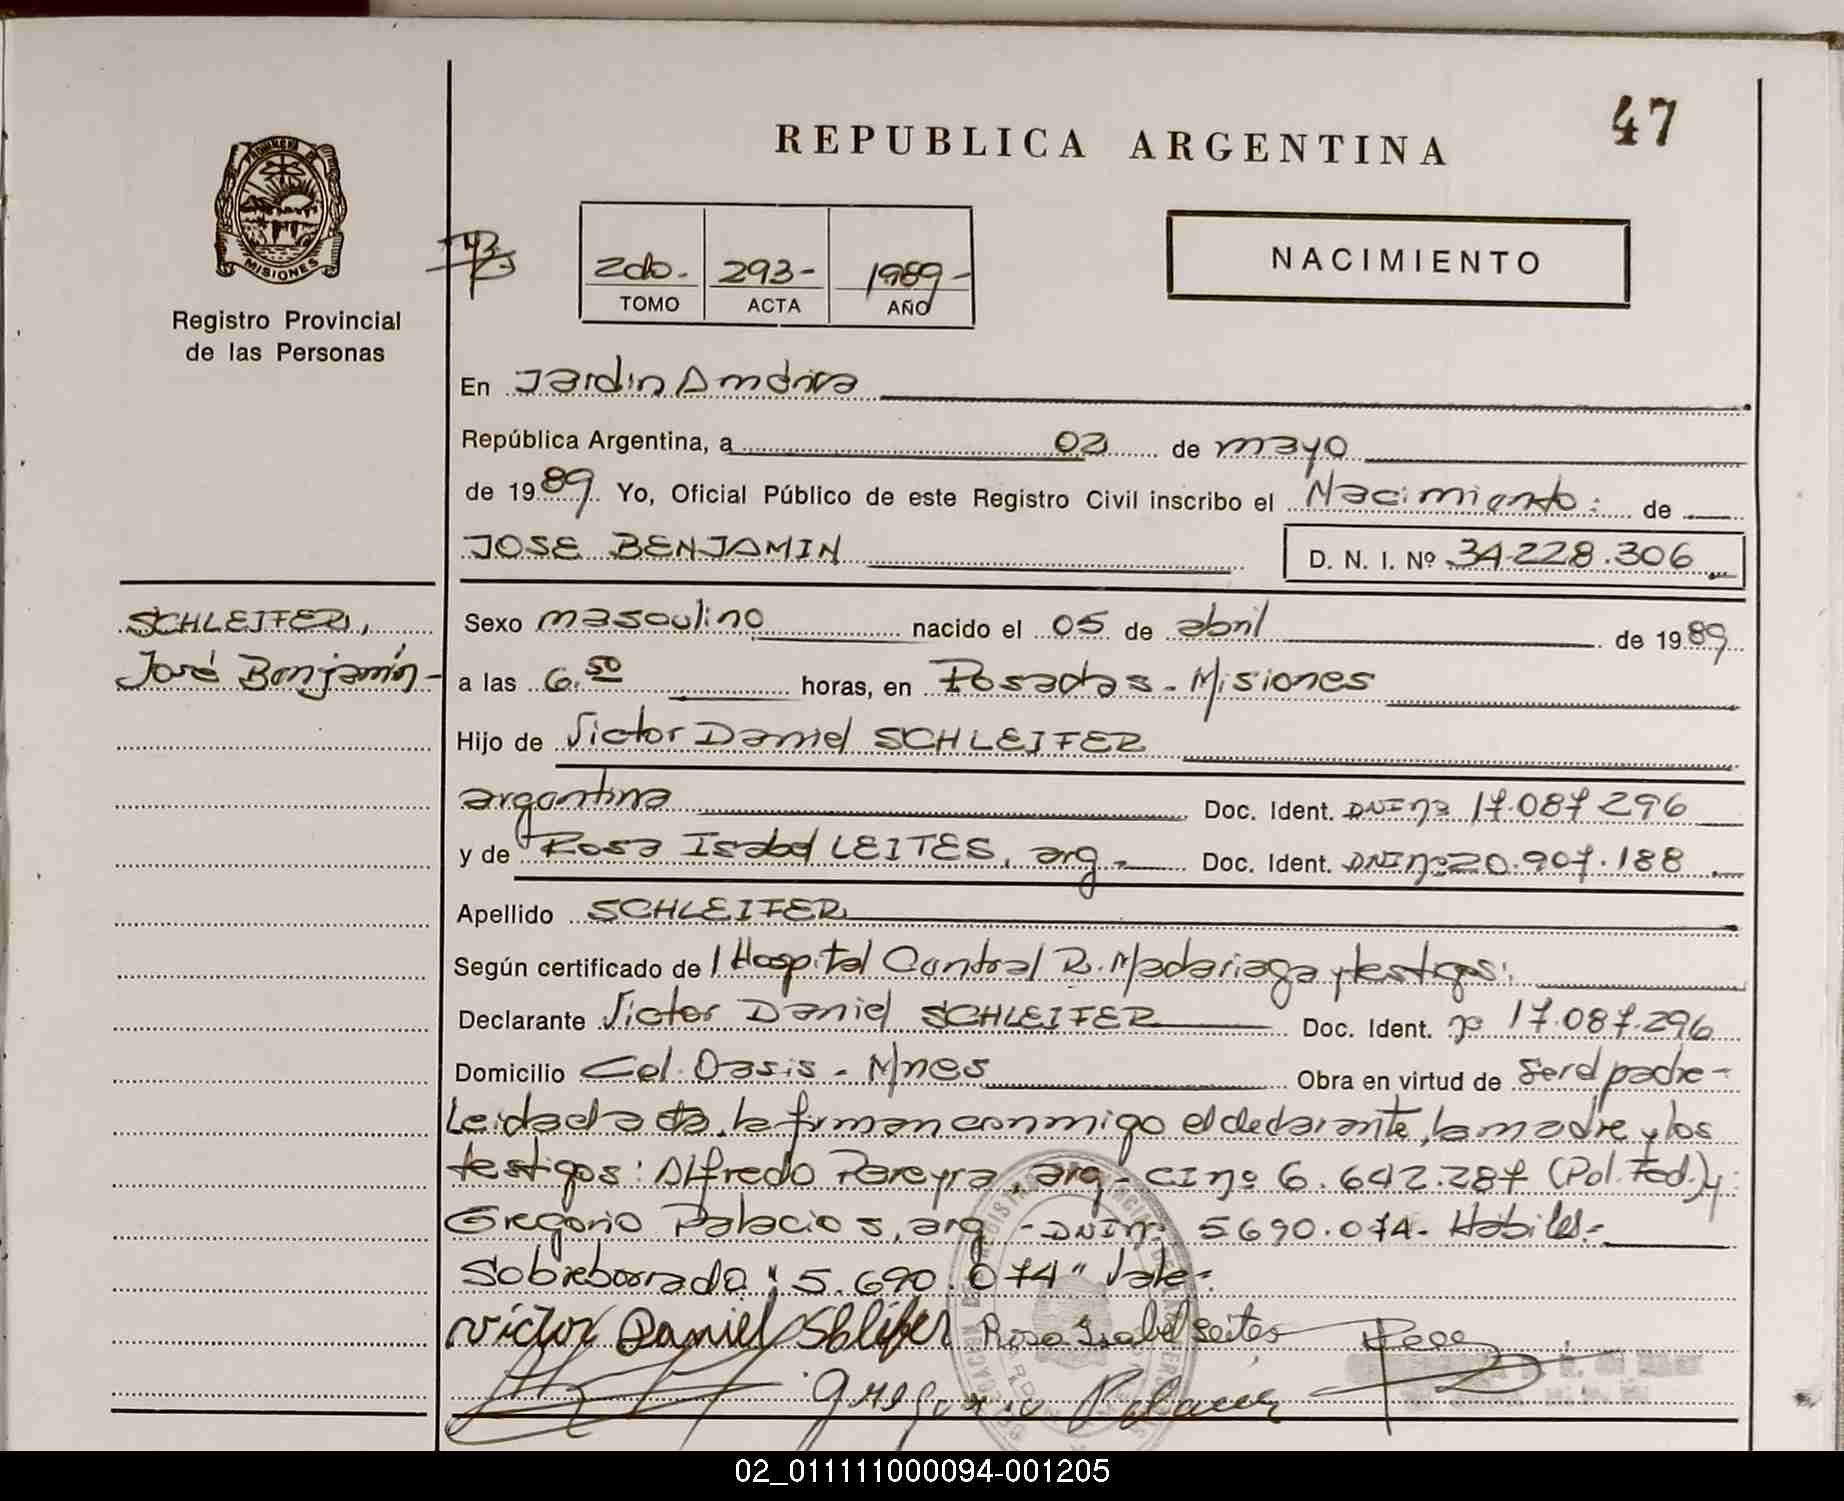 47
REPUBLICA ARGENTINA
PROVINCIA DE
MISIONES
Registro Provincial
de las Personas
2do.- 293- 1989-
TOMO ACTA AÑO
NACIMIENTO
En Jardin América
República Argentina, a 02 de mayo
de 1989. Yo, Oficial Público de este Registro Civil inscribo el Nacimiento: de
JOSE BENJAMIN D. N. I. Nº 34.228.306
SCHLEIFER,
José Benjamín-
Sexo masculino nacido el 05 de abril de 1989
a las 6.50 horas, en Posadas - Misiones
Hijo de Victor Daniel SCHLEIFER
argentina Doc. Ident. DNI nº 17.087.296
y de Rosa Isabel LEITES, arg.- Doc. Ident. DNI nº 20.907.188
Apellido SCHLEIFER
Según certificado de l Hospital Central R. Madariaga y testigos:
Declarante Victor Daniel SCHLEIFER Doc. Ident. nº 17.087.296
Domicilio Col. Oasis - Mnes Obra en virtud de ser el padre-
Leida el acta, la firman conmigo el declarante, la madre y los
testigos: Alfredo Pereyra, arg.- CI nº 6.642.287 (Pol. Fed.) y
Gregorio Palacios, arg - DNI nº 5690.074.- Hábiles.-
Sobreborrado: "5.690.074" Vale-
Victor Daniel Shlifer Rosa Isabel Leites
02_011111000094-001205